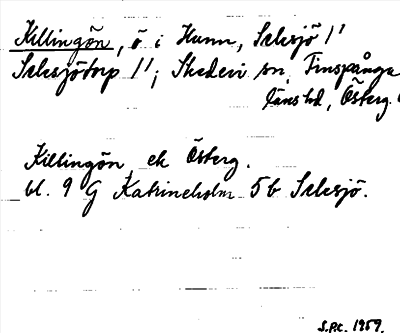 Killingön, ö i Hunn, Selesjö 1/1
Selesjötorp 1/1; Skedevi sn, Finspånga
läns hd, Österg.
Killingön ek Österg.
bl. 9 G Katrineholm 5b Selesjö.
S.P.C. 1959.